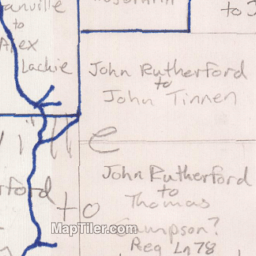 anville
to
Alex
Lackie
to J
John Rutherford
to
John Tinnen
ille
John Rutherford
to
Thomas
Sampson?
Reg Ln 78
rford
to
MapTiler.com